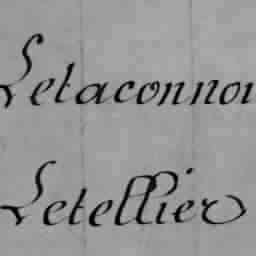 Letaconnou
Letellier